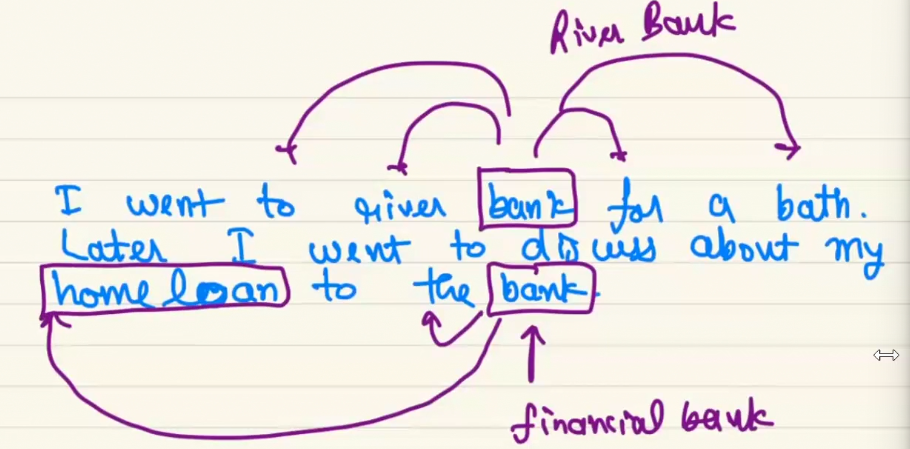 River Bank
I went to river bank for a bath.
Later I went to discuss about my
home loan to the bank.
financial bank